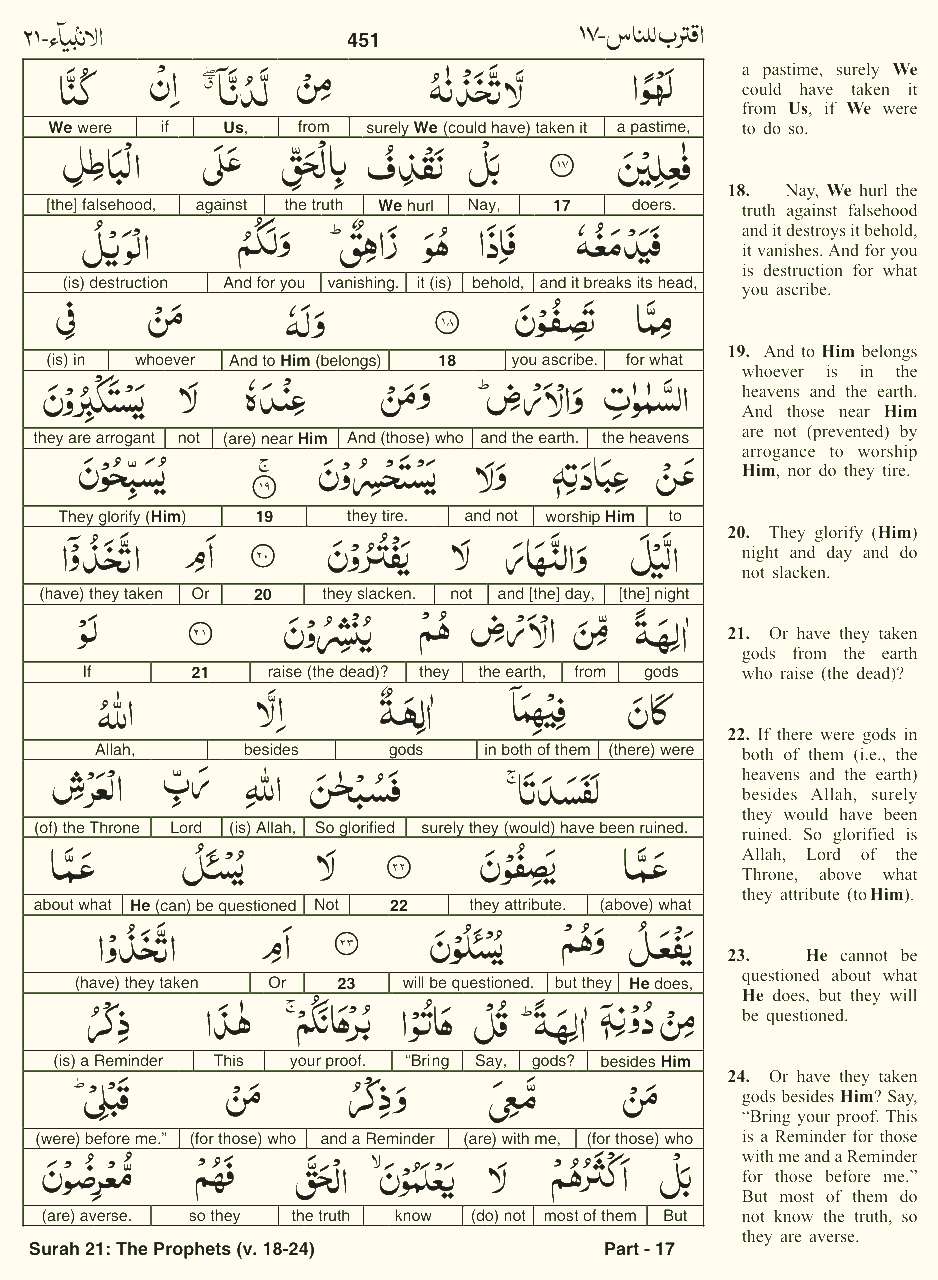 اقترب للناس-١٧ 451 الانبیآء-٢١
لَهْوًا لَّاتَّخَذْنٰهُ مِنْ لَّدُنَّاۤ ۖۗ اِنْ كُنَّا
a pastime, surely We (could have) taken it from Us, if We were
فٰعِلِیْنَ ١٧ بَلْ نَقْذِفُ بِالْحَقِّ عَلَی الْبَاطِلِ
doers. 17 Nay, We hurl the truth against [the] falsehood,
فَیَدْمَغُهٗ فَاِذَا هُوَ زَاهِقٌ ؕ وَلَكُمُ الْوَیْلُ
and it breaks its head, behold, it (is) vanishing. And for you (is) destruction
مِمَّا تَصِفُوْنَ ١٨ وَلَهٗ مَنْ فِی
for what you ascribe. 18 And to Him (belongs) whoever (is) in
السَّمٰوٰتِ وَالْاَرْضِ ؕ وَمَنْ عِنْدَهٗ لَا یَسْتَكْبِرُوْنَ
the heavens and the earth. And (those) who (are) near Him not they are arrogant
عَنْ عِبَادَتِهٖ وَلَا یَسْتَحْسِرُوْنَ ۚ ١٩ یُسَبِّحُوْنَ
to worship Him and not they tire. 19 They glorify (Him)
الَّیْلَ وَالنَّهَارَ لَا یَفْتُرُوْنَ ٢٠ اَمِ اتَّخَذُوْۤا
[the] night and [the] day, not they slacken. 20 Or (have) they taken
اٰلِهَةً مِّنَ الْاَرْضِ هُمْ یُنْشِرُوْنَ ٢١ لَوْ
gods from the earth, they raise (the dead)? 21 If
كَانَ فِیْهِمَاۤ اٰلِهَةٌ اِلَّا اللّٰهُ
(there) were in both of them gods besides Allah,
لَفَسَدَتَا ۚ فَسُبْحٰنَ اللّٰهِ رَبِّ الْعَرْشِ
surely they (would) have been ruined. So glorified (is) Allah, Lord (of) the Throne
عَمَّا یَصِفُوْنَ ٢٢ لَا یُسْـَٔلُ عَمَّا
(above) what they attribute. 22 Not He (can) be questioned about what
یَفْعَلُ وَهُمْ یُسْـَٔلُوْنَ ٢٣ اَمِ اتَّخَذُوْا
He does, but they will be questioned. 23 Or (have) they taken
مِنْ دُوْنِهٖۤ اٰلِهَةً ؕ قُلْ هَاتُوْا بُرْهَانَكُمْ ۚ هٰذَا ذِكْرُ
besides Him gods? Say, “Bring your proof. This (is) a Reminder
مَنْ مَّعِیَ وَذِكْرُ مَنْ قَبْلِیْ ؕ
(for those) who (are) with me, and a Reminder (for those) who (were) before me.”
بَلْ اَكْثَرُهُمْ لَا یَعْلَمُوْنَ ۙ الْحَقَّ فَهُمْ مُّعْرِضُوْنَ
But most of them (do) not know the truth so they (are) averse.
a pastime, surely We
could have taken it
from Us, if We were
to do so.
18. Nay, We hurl the
truth against falsehood
and it destroys it behold,
it vanishes. And for you
is destruction for what
you ascribe.
19. And to Him belongs
whoever is in the
heavens and the earth.
And those near Him
are not (prevented) by
arrogance to worship
Him, nor do they tire.
20. They glorify (Him)
night and day and do
not slacken.
21. Or have they taken
gods from the earth
who raise (the dead)?
22. If there were gods in
both of them (i.e., the
heavens and the earth)
besides Allah, surely
they would have been
ruined. So glorified is
Allah, Lord of the
Throne, above what
they attribute (to Him).
23. He cannot be
questioned about what
He does, but they will
be questioned.
24. Or have they taken
gods besides Him? Say,
“Bring your proof. This
is a Reminder for those
with me and a Reminder
for those before me.”
But most of them do
not know the truth, so
they are averse.
Surah 21: The Prophets (v. 18-24) Part - 17